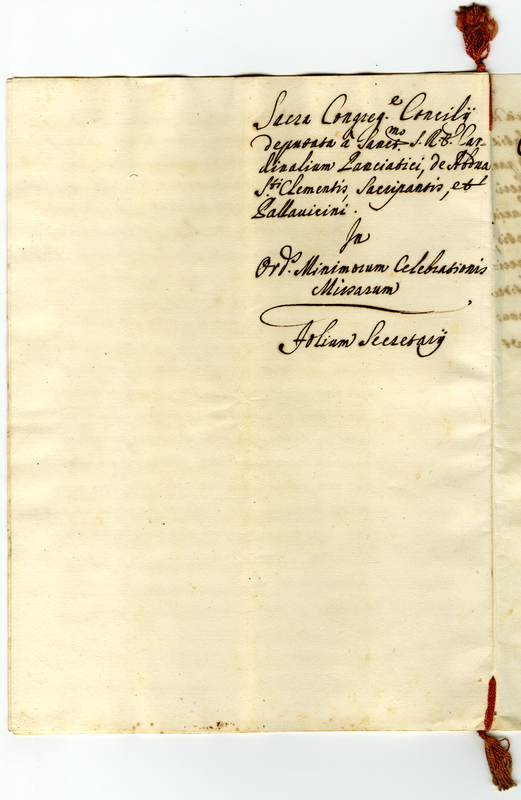 Sacra Congreg.e Concilij
deputata à Sanct.mo S.R.E. Car-
dinalium Panciatici, de Abdua
S.ti Clementis, Sacripantis, et
Pallavicini.
In
Ord.s Minimorum Celebrationis
Missarum
Folium Secretarij